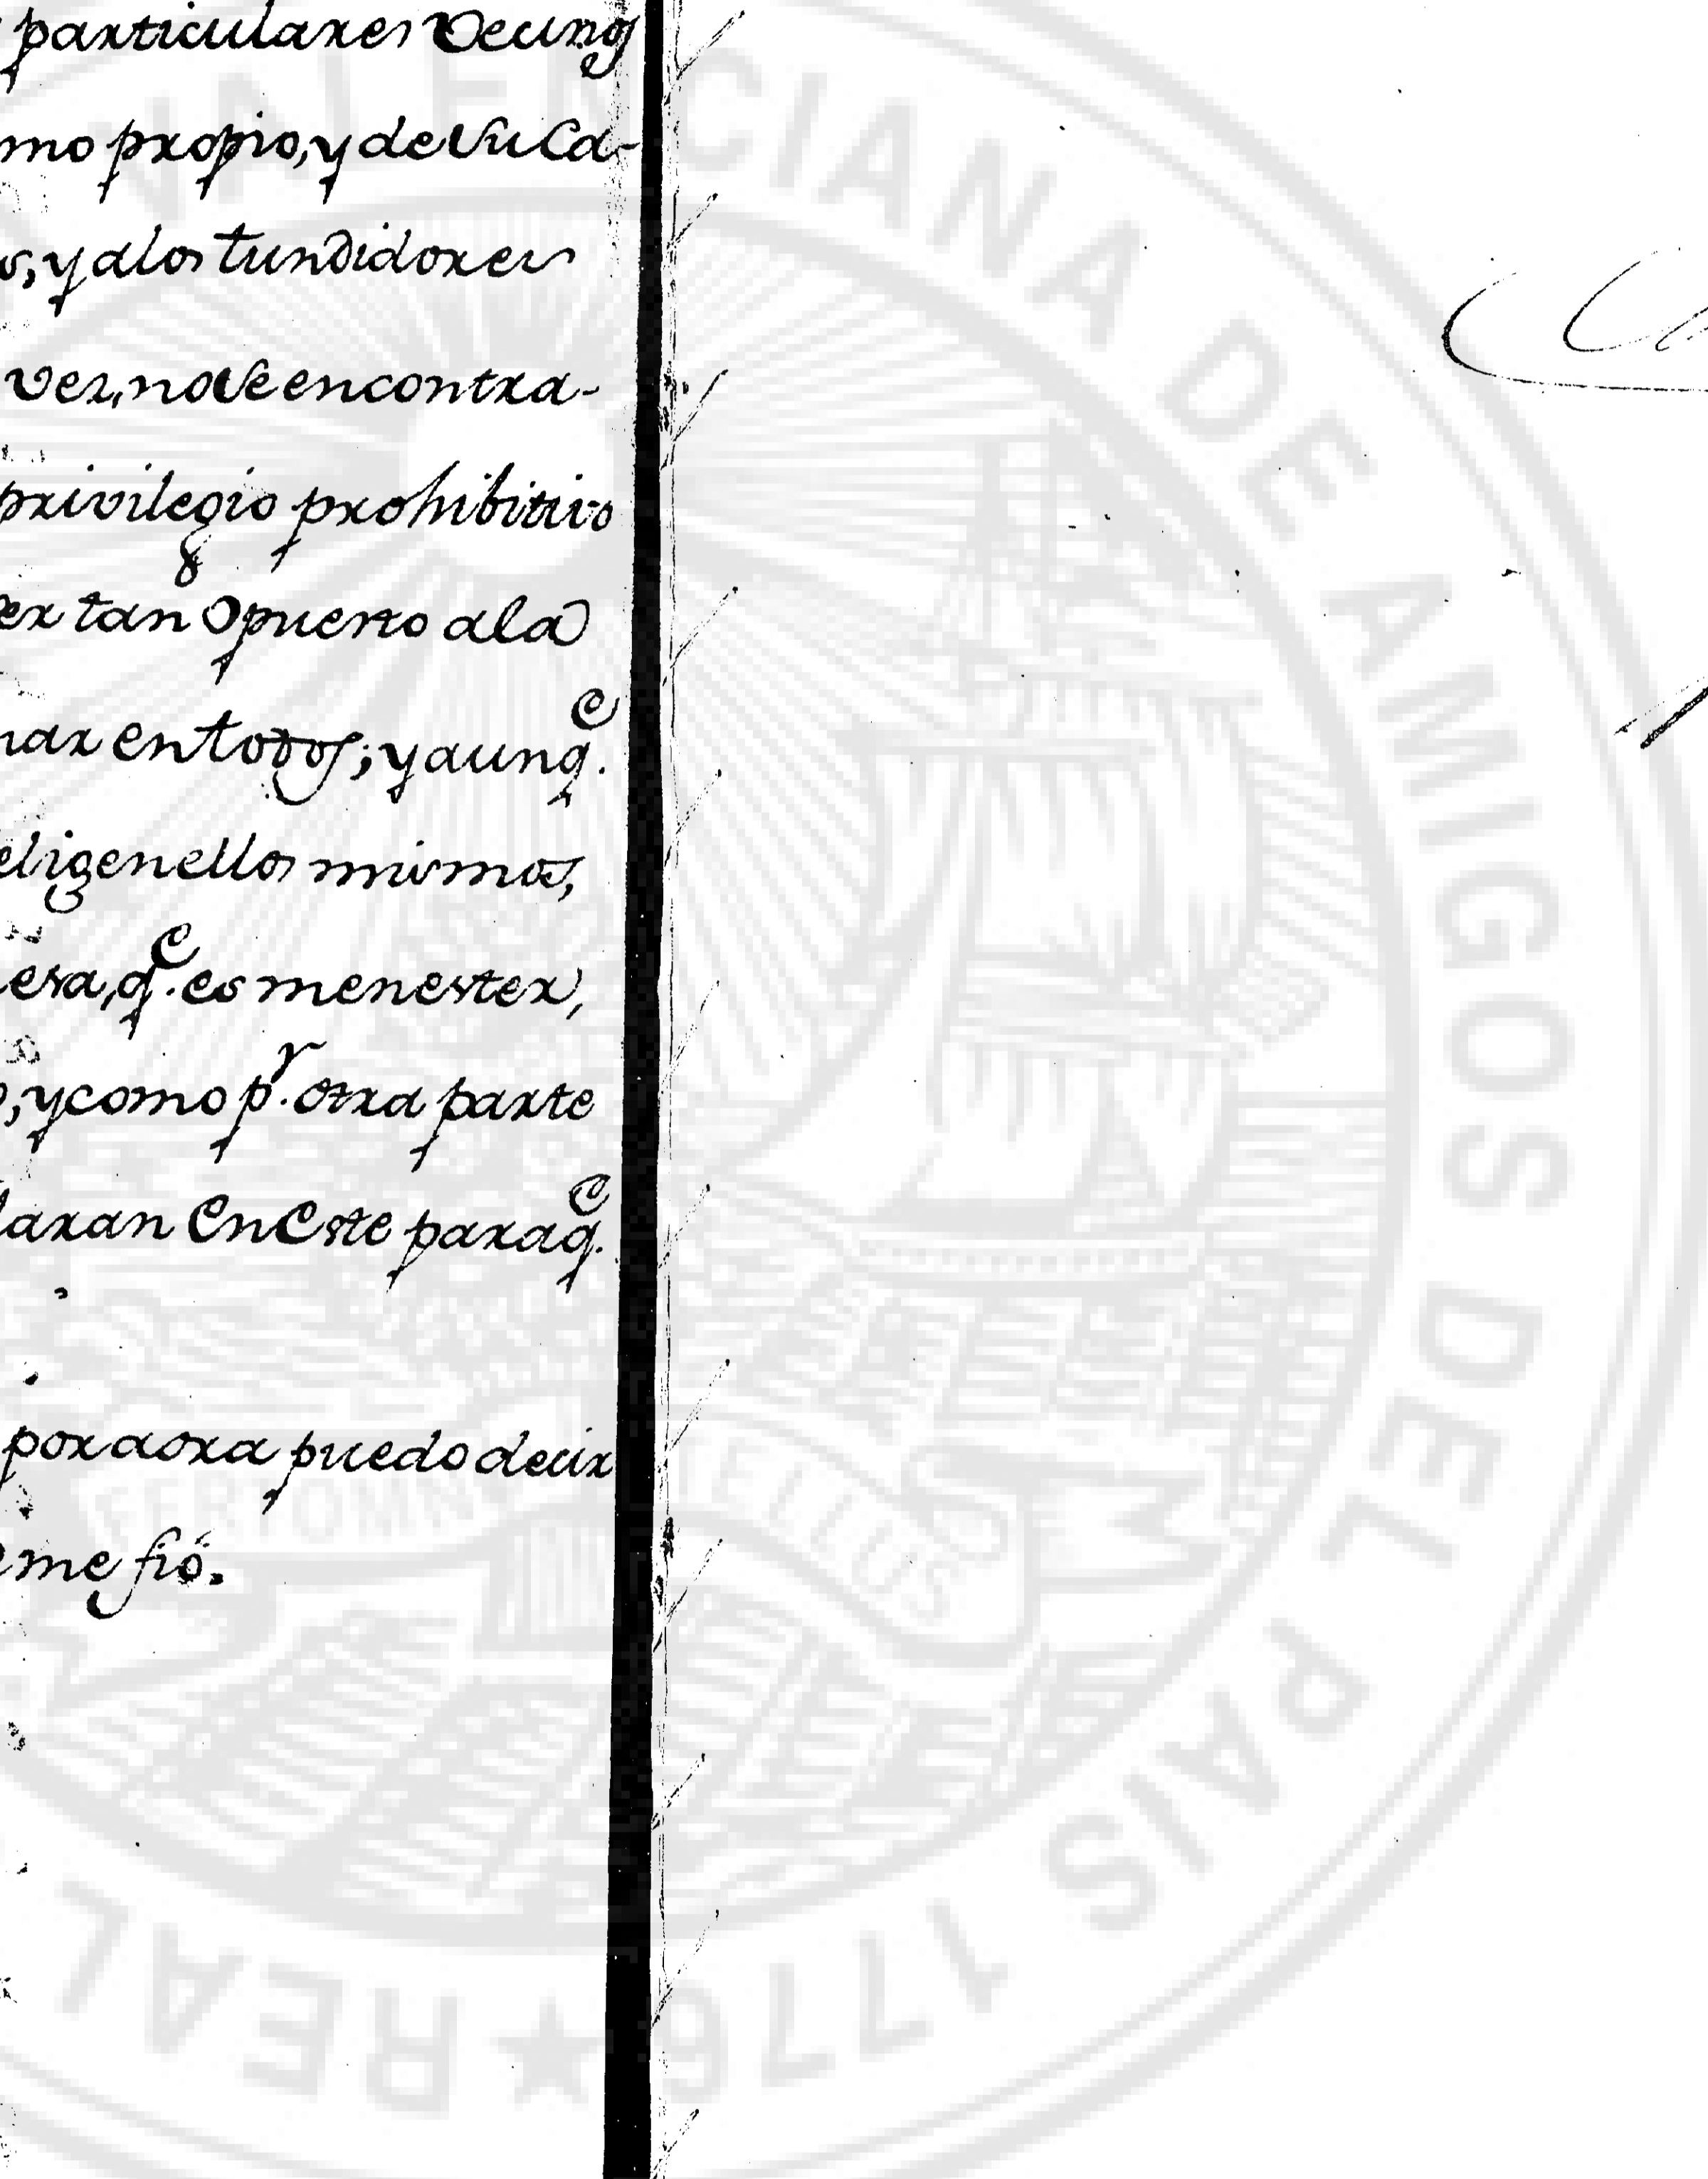 particulares de unos
mo propio, y de su Ca-
s, y a los tundidores
vez, no se encontra-
privilegio prohibitivo
er tan opuesto a la
nar en todos; y aunq.e
eligen ellos mismos,
esa, q.e es menester,
o, y como p.r otra parte
laran en este para q.e
por aora puedo decir
e me fió.
VALENCIANA DE AMIGOS DEL PAIS 1776 ★ REAL